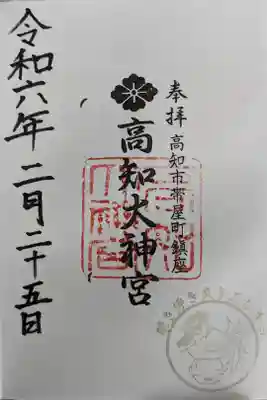 奉拝 高知市帯屋町鎮座
高知大神宮
令和六年 二月二十五日